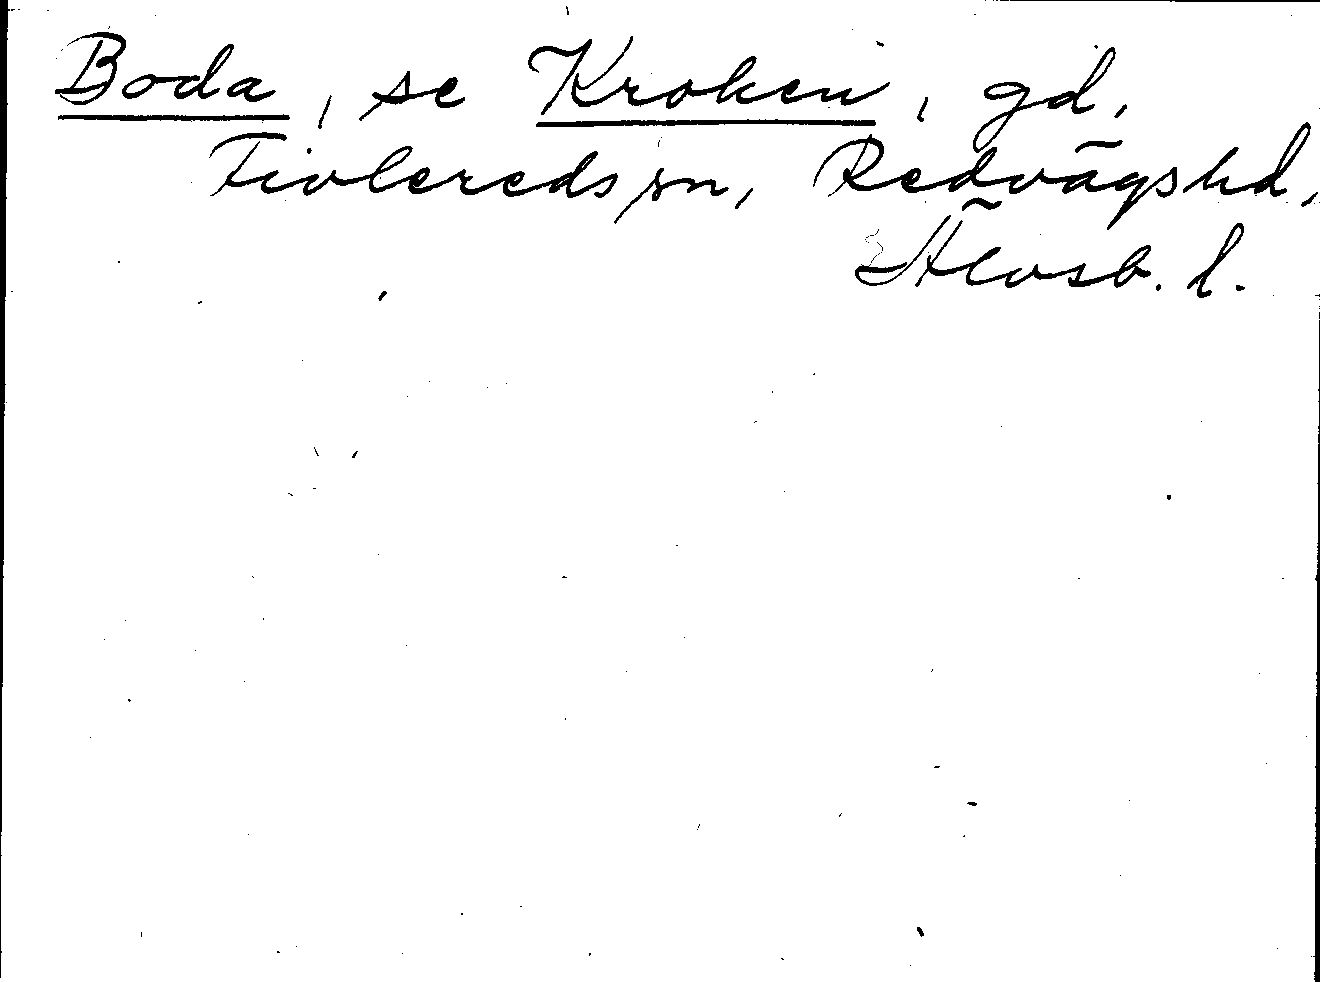 Boda, se Kroken, gd,
Fivlereds sn, Redvägs hd,
Älvsb. l.